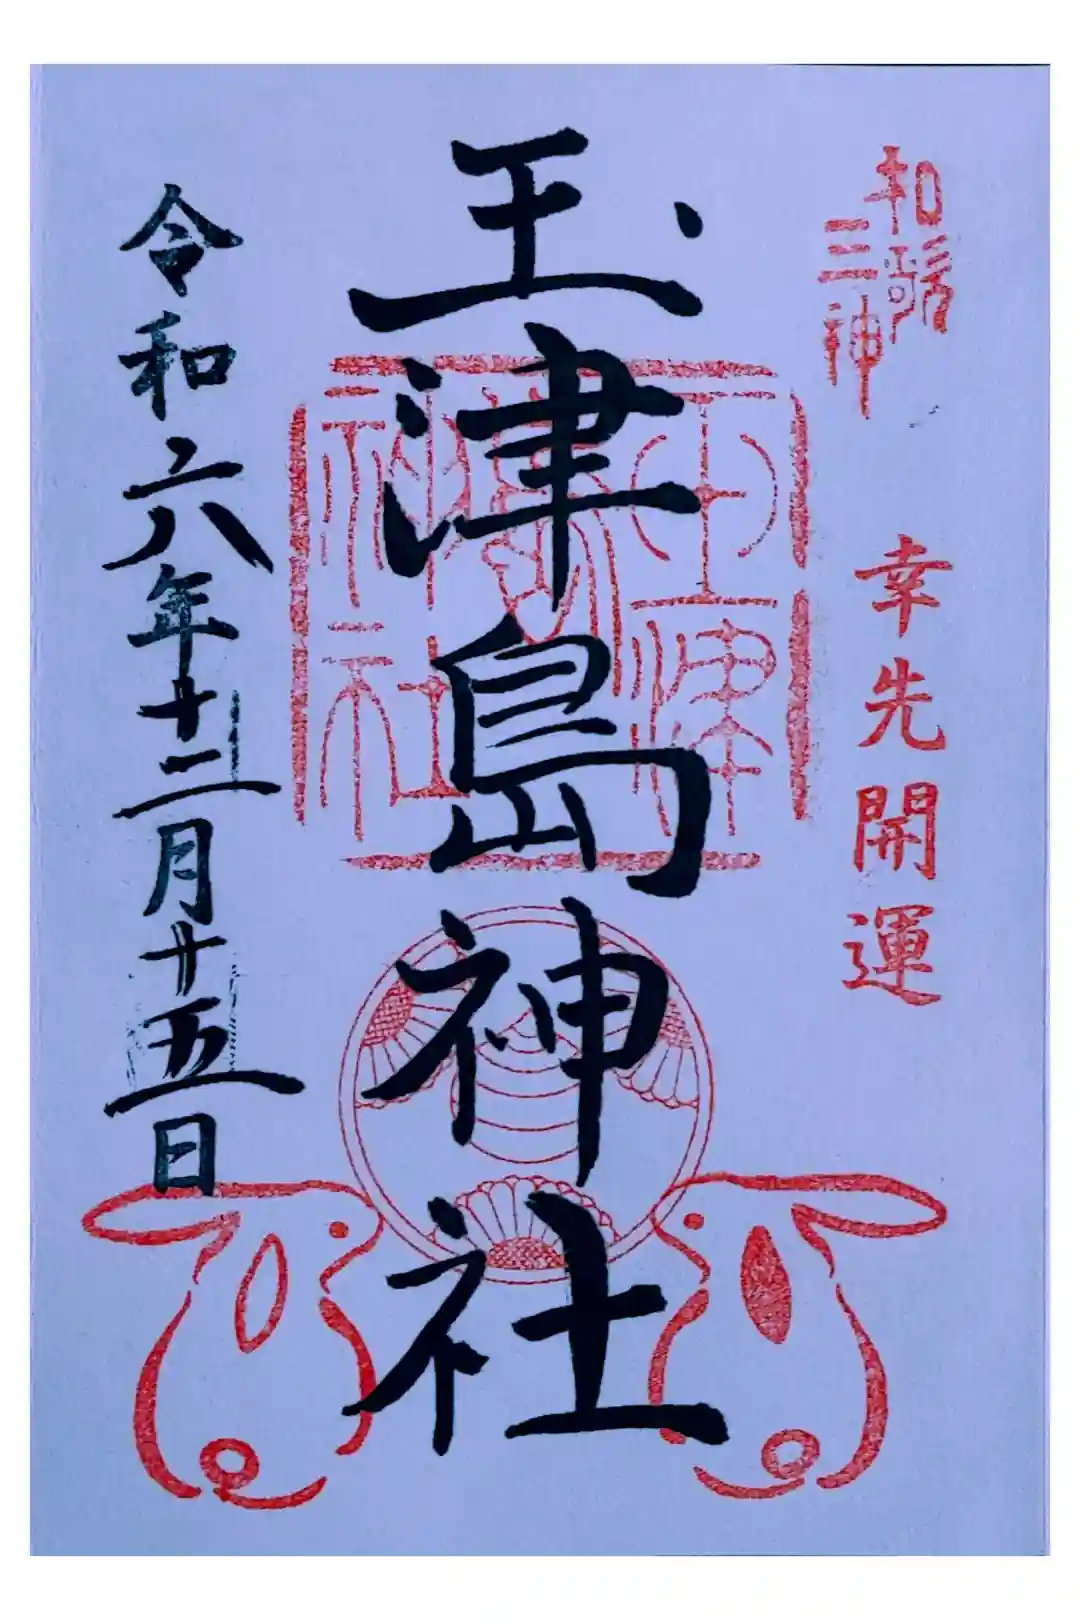 和歌
三神
幸先開運
玉津島神社
玉津
島
神社
令和六年十二月十五日